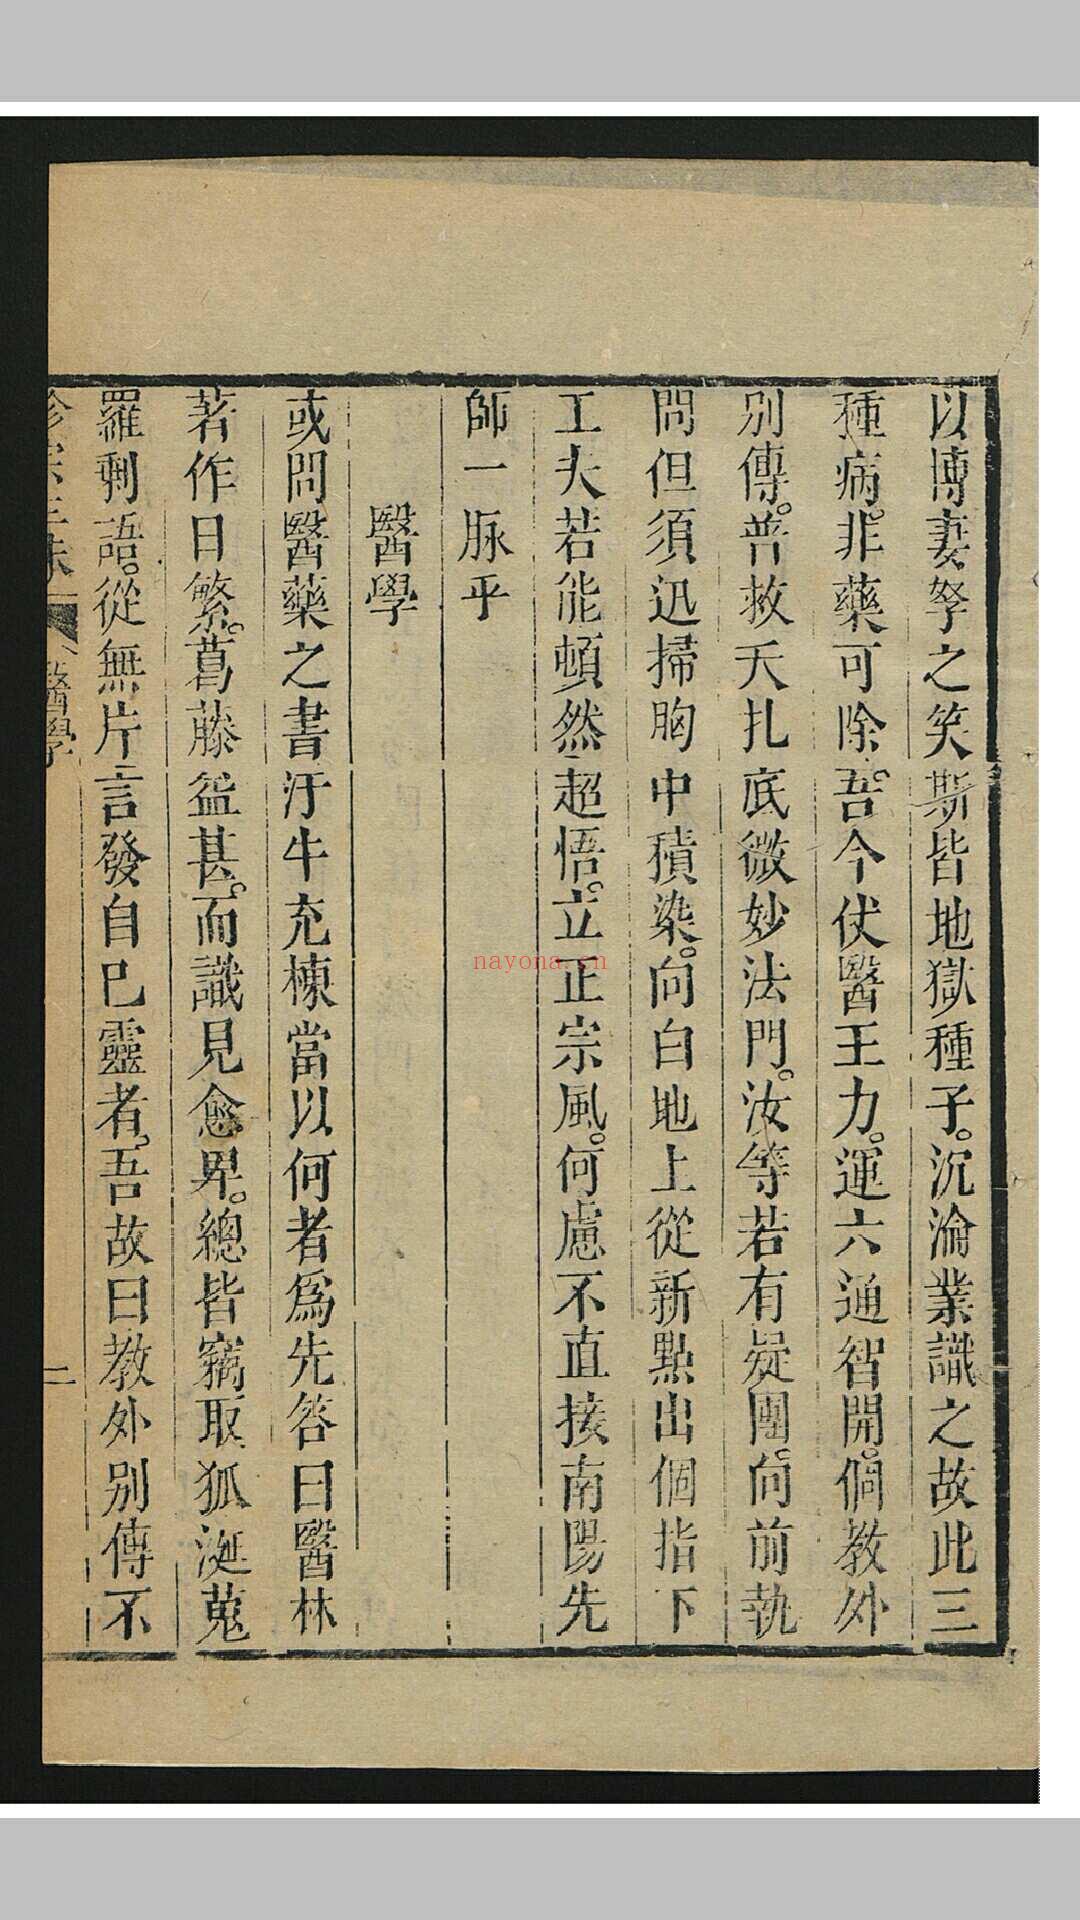 以博妻孥之笑斯皆地獄種子。沉淪業識之故此三
種病。非藥可除。吾今伏醫王力。運六通智開。個教外
別傳。普救夭扎底微妙法門。汝等若有疑團。向前執
問但須迅掃胸中積染。向白地上從新點出個指下
工夫若能頓然超悟。立正宗風。何慮不直接南陽先
師一脉乎
醫學
或問醫藥之書汗牛充棟當以何者為先答曰醫林
著作日繁。葛藤益甚。而識見愈卑。總皆竊取狐涎蒐
羅剩語。從無片言發自己靈者。吾故曰教外別傳不
診宗三昧 醫學 二
nayona.cn